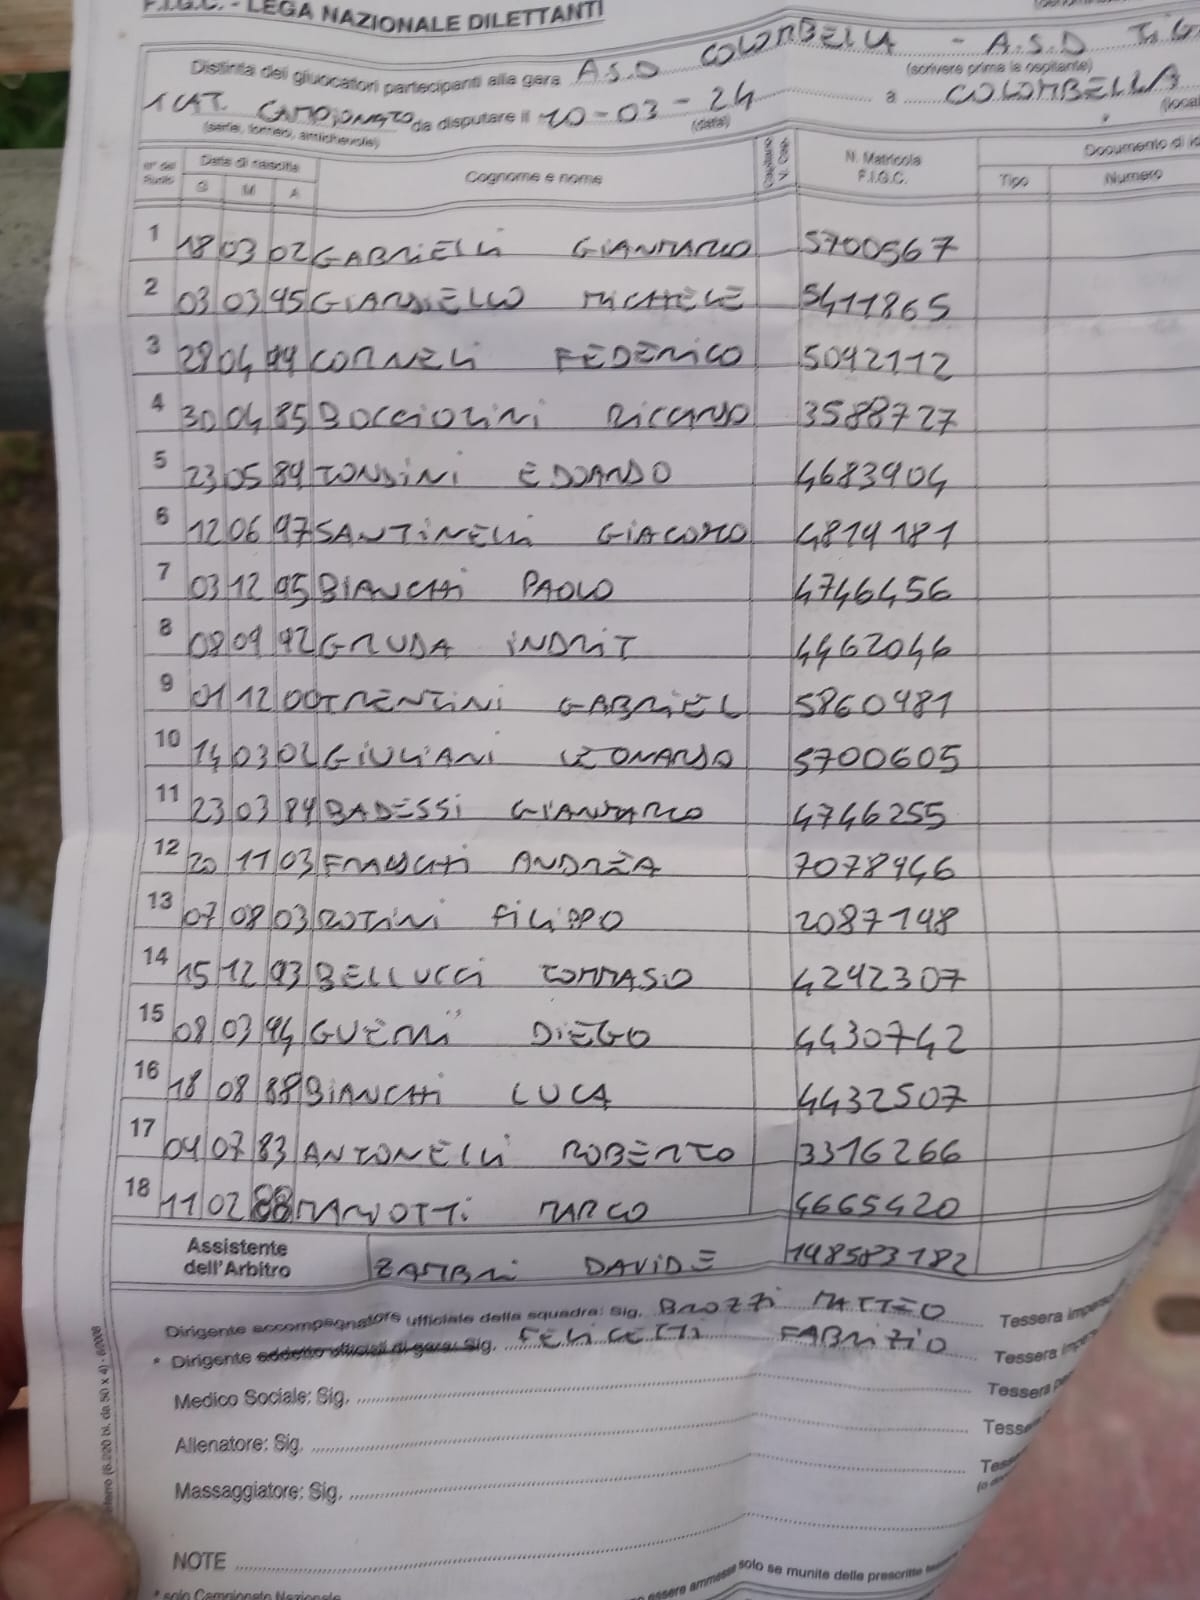 F.I.G.C. - LEGA NAZIONALE DILETTANTI
Distinta dei giuocatori partecipanti alla gara A.S.D COLOMBELLA - A.S.D
(scrivere prima la ospitante)
1 CAT. CAMPIONATO da disputare il 10-03-24 a COLOMBELLA
(serie, torneo, amichevole) (data)
Data di nascita Cognome e nome Capitano V. Cap. N. Matricola F.I.G.C. Documento di
G M A Tipo Numero
1 18 03 02 GABRIELLI GIANMARCO 5700567
2 03 03 95 GIARDIELLO MICHELE 5411865
3 28 04 99 CORNELI FEDERICO 5092112
4 30 04 85 BOCCIOLINI RICCARDO 3588727
5 23 05 89 TONDINI EDOARDO 4683904
6 12 06 97 SANTINELLI GIACOMO 4819181
7 03 12 95 BIANCHI PAOLO 4746456
8 08 09 92 GRUDA INDRIT 4462046
9 01 12 00 TRENTINI GABRIEL 5860981
10 14 03 02 GIULIANI LEONARDO 5700605
11 23 03 89 BADESSI GIANMARCO 4746255
12 20 11 03 ANDREA 7078946
13 07 08 03 ROTINI FILIPPO 2087148
14 15 12 93 BELLUCCI TOMMASO 4242307
15 08 03 94 GUERRI DIEGO 4430742
16 18 08 88 BIANCHI LUCA 4432507
17 04 07 83 ANTONELLI ROBERTO 3316266
18 11 02 88 MARIOTTI MARCO 4665420
Assistente dell'Arbitro ZAMBRI DAVIDE 148583182
Dirigente accompagnatore ufficiale della squadra: Sig. BROZZI MATTEO Tessera
* Dirigente addetto ufficiali di gara: Sig. FELICETTI FABRIZIO Tessera
Medico Sociale: Sig. Tessera
Allenatore: Sig.
Massaggiatore: Sig.
NOTE
essere ammesse solo se munite delle prescritte
* solo Campionato Nazionale